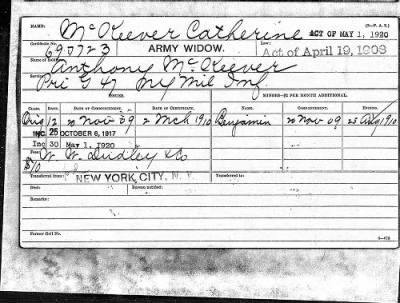 NAME: McKeever Catherine ACT OF MAY 1, 1920
Certificate No. 697723 ARMY WIDOW. Law: Act of April 19, 1908
Name of Anthony McKeever
Service: Pri G 47 Ny Mil Inf
ISSUES. MINORS—$2 PER MONTH ADDITIONAL.
CLASS RATE DATE OF COMMENCEMENT. DATE OF CERTIFICATE. NAME. COMMENCEMENT. ENDING.
Orig 12 20 Nov 09 2 Mch 1910 Benjamin 20 Nov 09 25 Aug 1910
INC. 25 OCTOBER 6, 1917
Inc 30 May 1, 1920
Fee: W. W. Dudley & Co
$10
Transferred from: NEW YORK CITY, N. Y. Transferred to:
Died: Bureau notified:
Remarried:
Former Roll No.